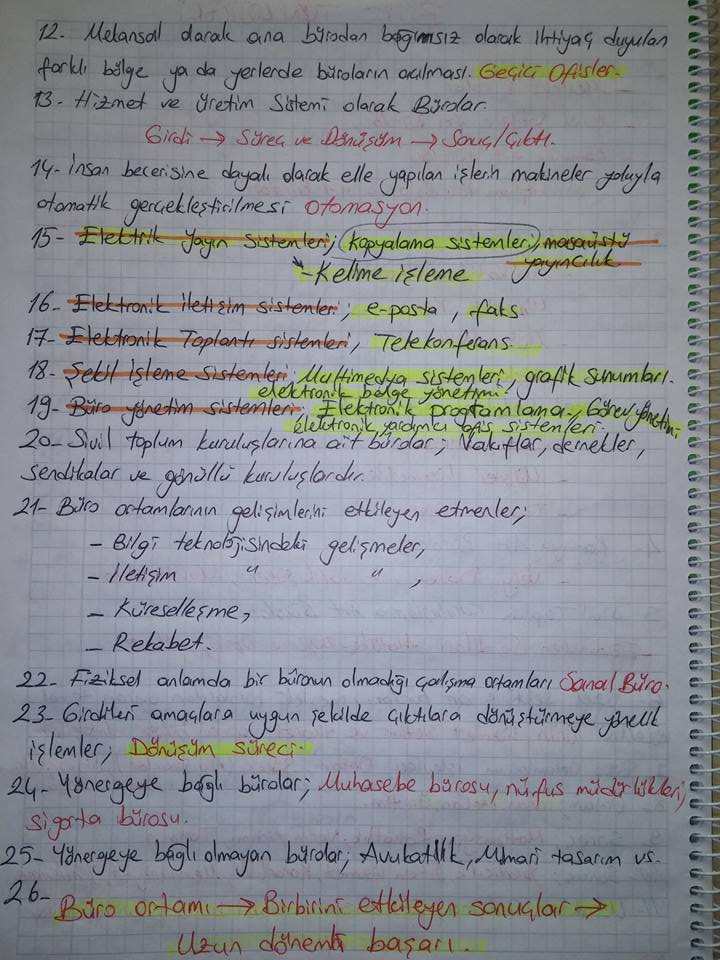 12. Mekansal olarak ana bürodan bağımsız olarak ihtiyaç duyulan
farklı bölge ya da yerlerde büroların açılması. Geçici Ofisler.
13- Hizmet ve üretim Sistemi olarak Bürolar.
Girdi → Süreç ve Dönüşüm → Sonuç/Çıktı.
14- İnsan becerisine dayalı olarak elle yapılan işlerin makineler yoluyla
otomatik gerçekleştirilmesi Otomasyon.
15- Elektrik Yayın Sistemleri; Kopyalama sistemleri, masaüstü
yayıncılık
- Kelime işleme
16- Elektronik İletişim sistemleri; e-posta, faks.
17- Elektronik Toplantı sistemleri, Telekonferans.
18- Şekil işleme sistemleri; Multimedya sistemleri, grafik sunumları.
elektronik belge yönetimi
19- Büro yönetim sistemleri; Elektronik programlama, Görev yönetimi
elektronik yardımlı ofis sistemleri.
20- Sivil toplum kuruluşlarına ait bürolar; Vakıflar, dernekler,
sendikalar ve gönüllü kuruluşlardır.
21- Büro ortamlarının gelişimlerini etkileyen etmenler;
- Bilgi teknolojisindeki gelişmeler,
- İletişim " " ,
- Küreselleşme,
- Rekabet.
22- Fiziksel anlamda bir büronun olmadığı çalışma ortamları Sanal Büro.
23- Girdileri amaçlara uygun şekilde çıktılara dönüştürmeye yönelik
işlemler; Dönüşüm süreci.
24- Yönergeye bağlı bürolar; Muhasebe bürosu, nüfus müdürlükleri,
sigorta bürosu.
25- Yönergeye bağlı olmayan bürolar; Avukatlık, Mimari tasarım vs.
26-
Büro ortamı → Birbirini etkileyen sonuçlar →
Uzun dönemli başarı.